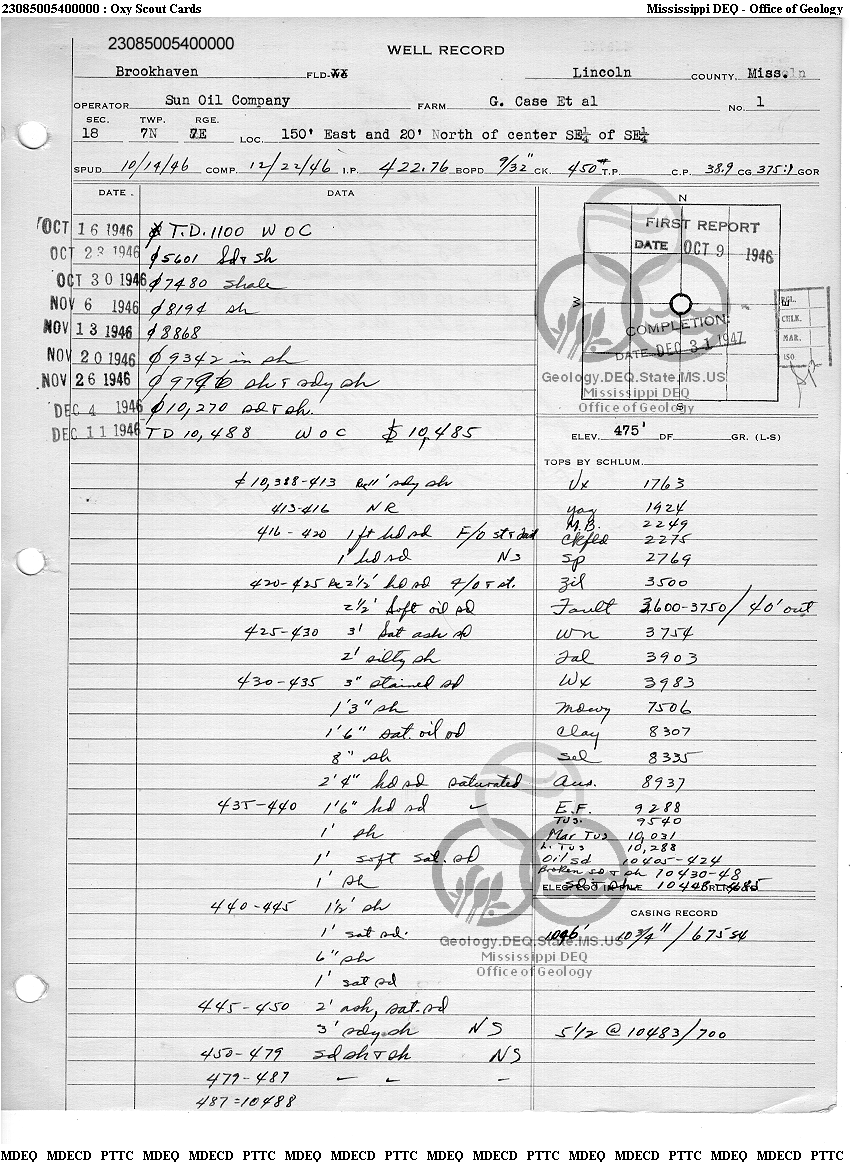 23085005400000 : Oxy Scout Cards Mississippi DEQ - Office of Geology
23085005400000
WELL RECORD
Brookhaven FLD. Lincoln COUNTY, Miss.
OPERATOR Sun Oil Company FARM G. Case Et al No. 1
SEC. TWP. RGE.
18 7N 7E LOC. 150' East and 20' North of center SE¼ of SE¼
SPUD 10/14/46 COMP. 12/22/46 I.P. 422.76 BOPD 9/32" CK. 450# T.P. C.P. 38.9 CG 375:1 GOR
DATE DATA
OCT 16 1946 T.D. 1100 W O C
OCT 23 1946 5601 Sd & sh
OCT 30 1946 7480 shale
NOV 6 1946 8194 sh
NOV 13 1946 8868
NOV 20 1946 9342 in sh
NOV 26 1946 sh & sdy sh
DEC 4 1946 10,270 sd & sh.
DEC 11 1946 TD 10,488 W O C 10,485
10,388-413 sdy sh
413-416 N R
416-420 1 ft hd sd F/O
1' hd sd NS
420-425 Rc 2½' hd sd F/O & st.
2½' Soft oil sd
425-430 3' Sat ash sd
2' silty sh
430-435 3" stained sd
1'3" sh
1'6" sat. oil sd
8" sh
2'4" hd sd saturated
435-440 1'6" hd sd "
1' sh
1' soft sat. sd
1' sh
440-445 1½' sh
1' sat sd.
6" sh
1' sat sd
445-450 2' ash, sat. sd
3' sdy sh NS
450-479 sd sh & sh NS
479-487 " " "
487=10488
N
FIRST REPORT
DATE OCT 9 1946
W E
COMPLETION:
DATE DEC 31 1947
S
CHLK.
MAR.
ISO
Geology.DEQ.State.MS.US
Mississippi DEQ
Office of Geology
ELEV. 475' DF GR. (L-S)
TOPS BY SCHLUM.
Vx 1763
yaz 1924
M.B. 2249
Ckfld 2275
Sp 2769
Zil 3500
Fault 3600-3750/40' out
Wn 3754
Sal 3903
Wx 3983
Mdwy 7506
Clay 8307
Sel 8335
Aus. 8937
E.F. 9288
Tus. 9540
Mar Tus 10,031
L. Tus 10,288
Oil sd 10405-424
Broken sd & sh 10430-48
CASING RECORD
10¾"/675 sx
Geology.DEQ.State.MS.US
Mississippi DEQ
Office of Geology
5½ @ 10483/700
MDEQ MDECD PTTC MDEQ MDECD PTTC MDEQ MDECD PTTC MDEQ MDECD PTTC MDEQ MDECD PTTC MDEQ MDECD PTTC